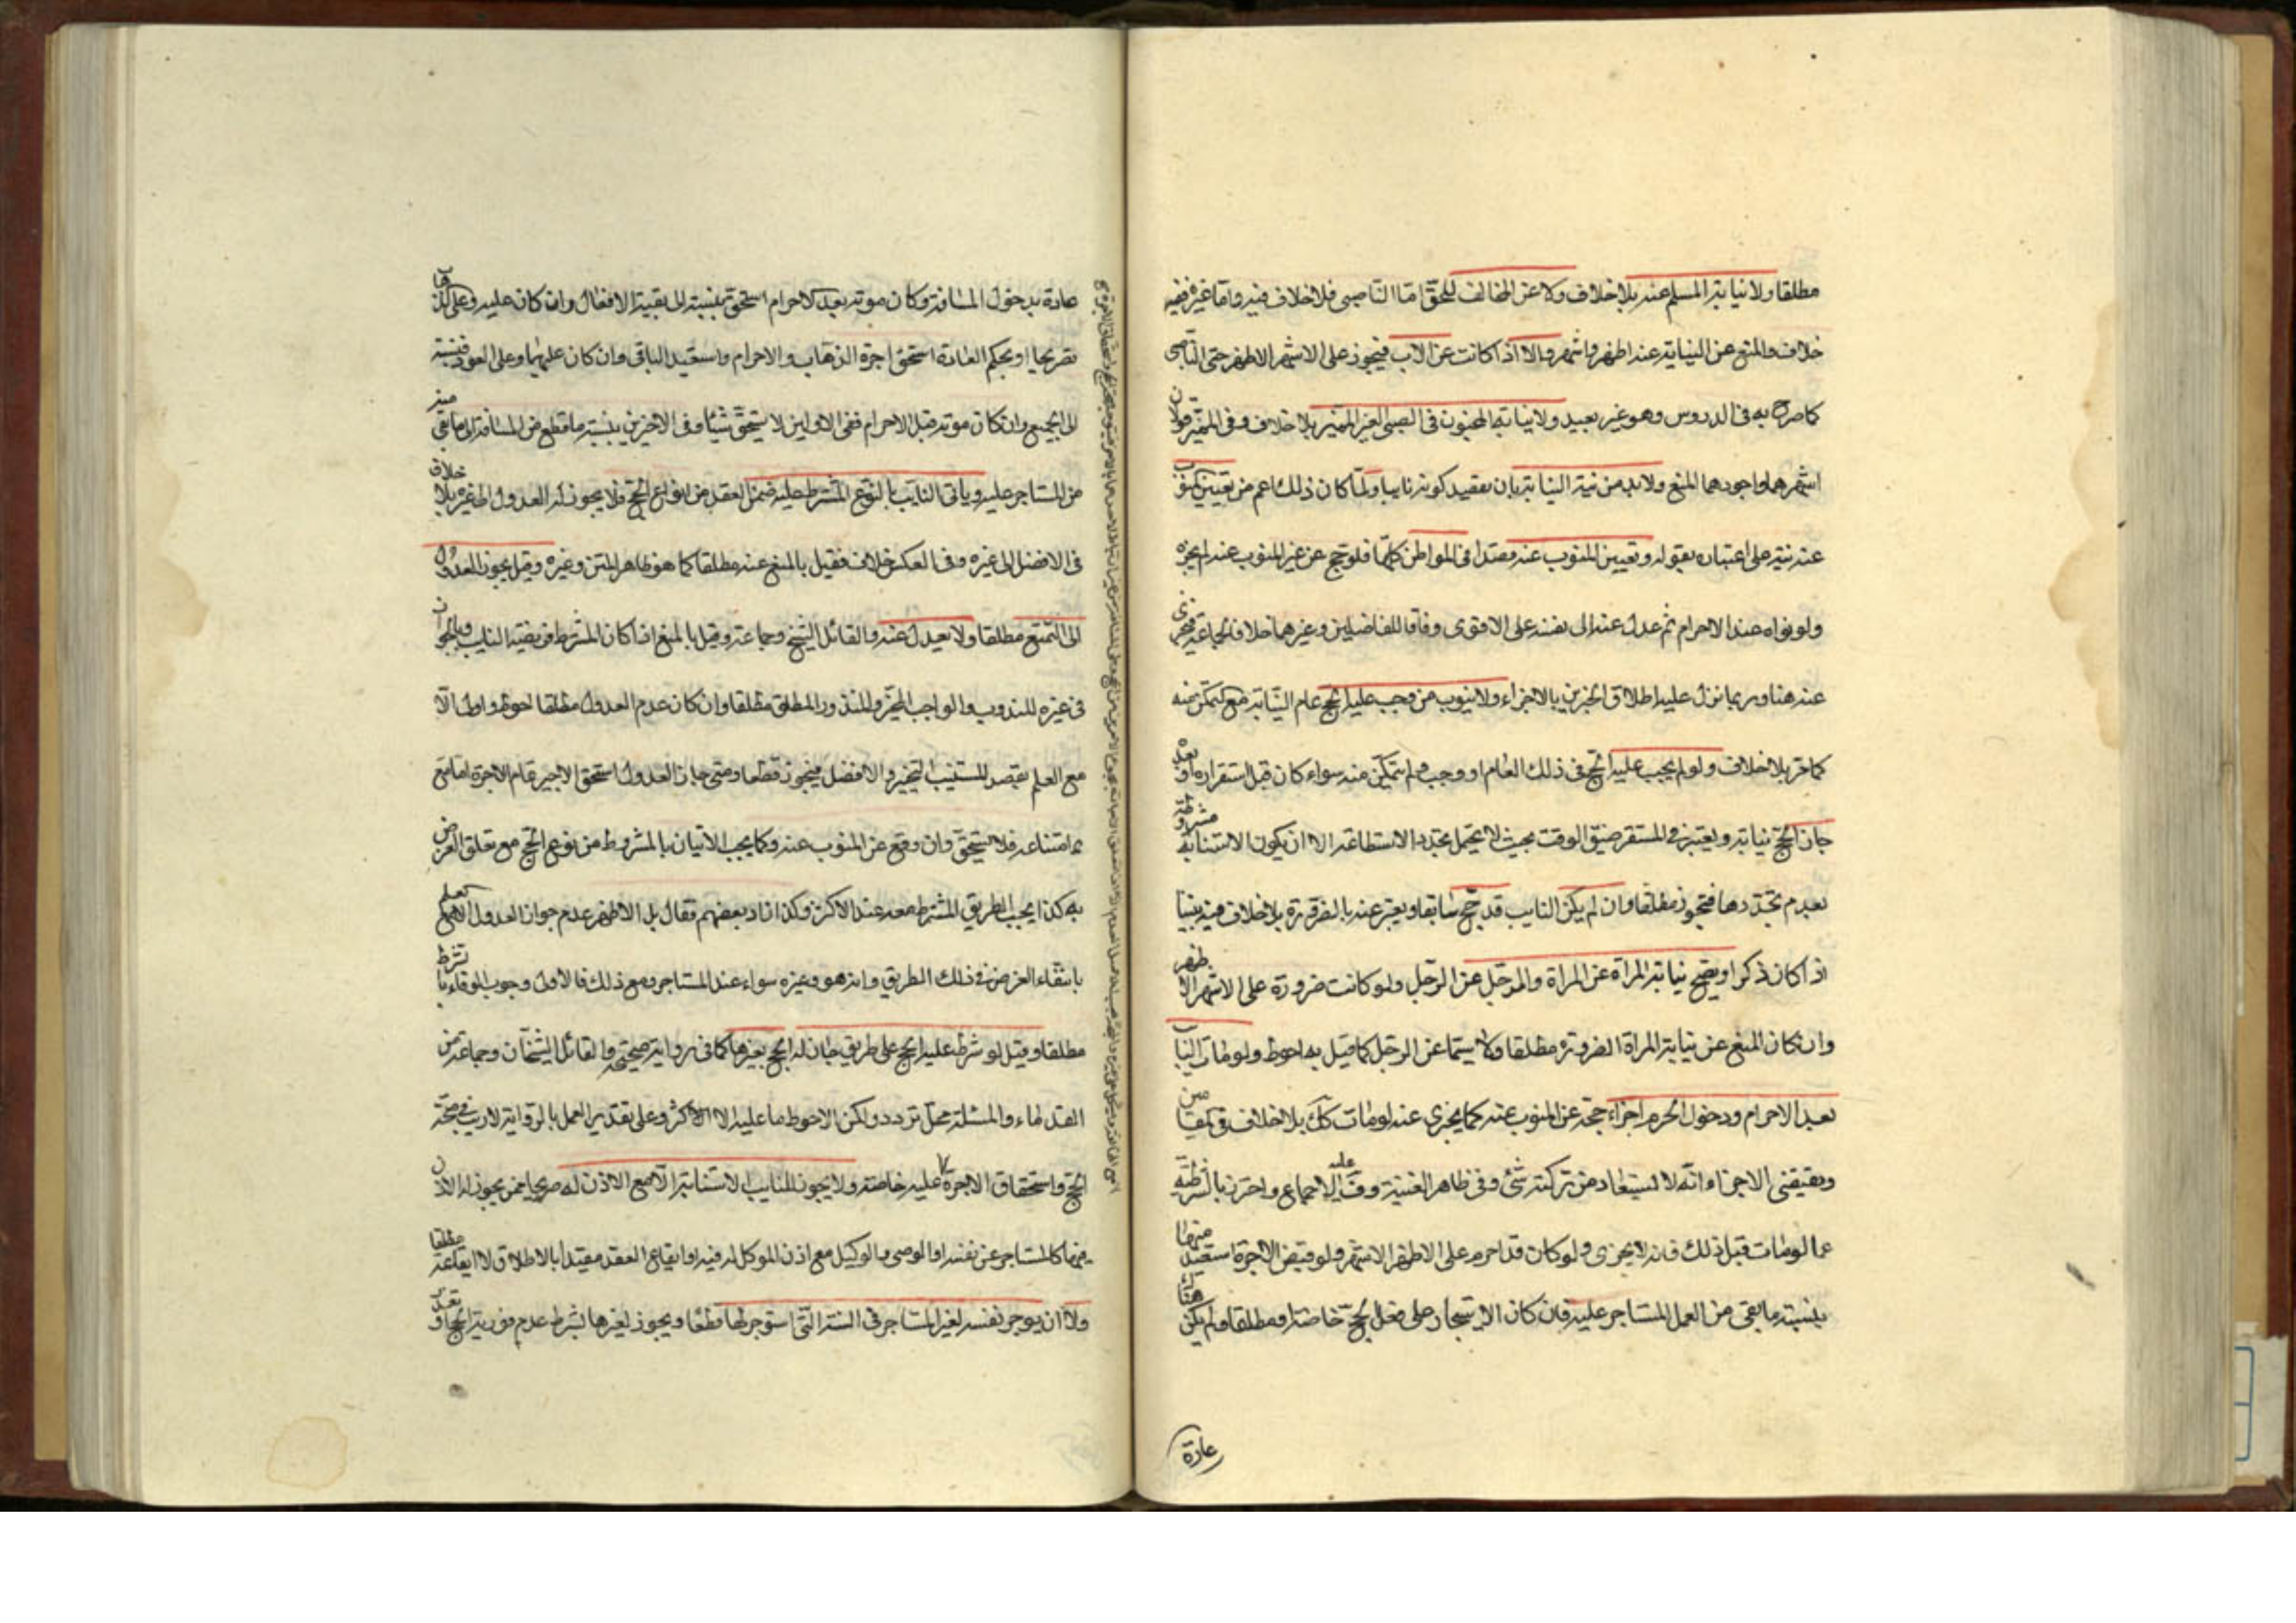 مطلقا ولا نيابة المسلم عنه بلا خلاف ولا عن المخالف للحق اما الناصبي فلا خلاف فيه واما غيره ففيه
خلاف والمنع عن النيابة عنه اظهر واشهر والا اذا كانت عن الاب فيجوز على الاشهر الاظهر حتى الناصبي
كما صرح به في الدروس وهو غير بعيد ولا نيابة المجنون في الصبي الغير المميز بلا خلاف وفي المميز قولان
اشهرهما واجودهما المنع ولا بد من نية النيابة بان يقصد كونه نايبا ولما كان ذلك اعم من تعيين المنوب
عنه نبه على اعتباره بقوله وتعيين المنوب عنه قصدا في المواطن كلها فلو حج عن غير المنوب عنه لم يجزه
ولو نواه عند الاحرام ثم عدل عنه الى نفسه على الاقوى وفاقا للفاضلين وغيرهما خلافا لجماعة فيجزى
عنه هنا وربما نزل عليه اطلاق الخبرين بالاجزاء ولا ينوب من وجب عليه الحج عام النيابة مع تمكن منه
كما مر بلا خلاف ولو لم يجب عليه الحج في ذلك العام او وجب ولم يتمكن منه سواء كان قبل استقراره او بعده
جاز الحج نيابة ويعتبر في المستقر ضيق الوقت بحيث لا يحتمل تجدد الاستطاعة الا ان يكون الاستنابة مشروطة
بعدم تجددها فتجوز مطلقا وان لم يكن النايب قد حج سابقا ويعبر عنه بالضرورة بلا خلاف فيه بيننا
اذا كان ذكرا ويصح نيابة المراة عن المراة والرجل عن الرجل ولو كانت ضرورة على الاشهر الاظهر
وان كان المنع عن نيابة المراة الضرورة مطلقا ولا سيما عن الرجل كما قيل به احوط ولو مات النايب
بعد الاحرام ودخول الحرم اجزاء حجه عن المنوب عنه كما يجزى عنه لو مات كك بلا خلاف في المقامين
ويقتضي الاجزاء انه لا يستعاد من تركته شئ وفي ظاهر الغنية وف عليه الاجماع واحترز بالشرطية
عما لو مات قبل ذلك فانه لا يجزى ولو كان قد احرم على الاظهر الاشهر ولو قبض الاجرة استعيد منها
بنسبة ما بقي من العمل المستاجر عليه فان كان الاستيجار على فعل الحج خاصة او مطلقا ولم يكن هناك
عادة
عادة بدخول المسافة وكان موته بعد الاحرام استحق بنسبته الى بقية الافعال وان كان عليه وعلى الذهاب
تصريحا او بحكم العادة استحق اجرة الذهاب والاحرام واستعيد الباقي وان كان عليهما وعلى العود فبنسبته
الى الجميع وان كان موته قبل الاحرام ففي الاولين لا يستحق شيئا وفي الاخيرين بنسبة ما قطع من المسافة الى ما بقي منه
من المستاجر عليه وياتي النايب بالنوع المشترط عليه ضمن العقد من انواع الحج فلا يجوز له العدول الى غيره بلا خلاف
في الافضل الى غيره وفي العكس خلاف فقيل بالمنع عنه مطلقا كما هو ظاهر المتن وغيره وقيل يجوز العدول
الى التمتع مطلقا ولا يعدل عنه والقائل الشيخ وجماعة وقيل بالمنع اذا كان المشترط فريضة النايب وبالجواز
في غيره للمندوب والواجب المخير والمنذور المطلق مطلقا وان كان عدم العدول مطلقا احوط واولى الا
مع العلم بقصد المستنيب التخيير والافضل فيجوز قطعا ومتى جاز العدول استحق الاجير تمام الاجرة اما مع
امتناعه فلا يستحق وان وقع عن المنوب عنه وكما يجب الاتيان بالمشروط من نوع الحج مع تعلق الغرض
به كذا يجب الطريق المشترط معه عند الاكثر وكذا زاد بعضهم فقال بل الاظهر عدم جواز العدول الا مع العلم
بانتفاء الغرض في ذلك الطريق وانه هو وغيره سواء عند المستاجر ومع ذلك فالاولى وجوب الوفاء بالشرط
مطلقا وقيل لو شرط عليه الحج على طريق جاز له الحج بغيرها كما في رواية صحيحة والقائل الشيخان وجماعة من
القدماء والمسئلة محل تردد ولكن الاحوط ما عليه الاكثر وعلى تقدير العمل بالرواية لا ريب في صحة
الحج واستحقاق الاجرة عليه خاصة ولا يجوز للنايب الاستنابة الا مع الاذن له صريحا ممن يجوز له الاذن
فيها كالمستاجر عن نفسه او الوصي والوكيل مع اذن الموكل له فيه او ايقاع العقد مقيدا بالاطلاق لا ايقاعه مطلقا
ولا ان يوجر نفسه لغير المستاجر في السنة التي استوجر لها قطعا ويجوز لغيرها بشرط عدم فورية الحج او تعذر